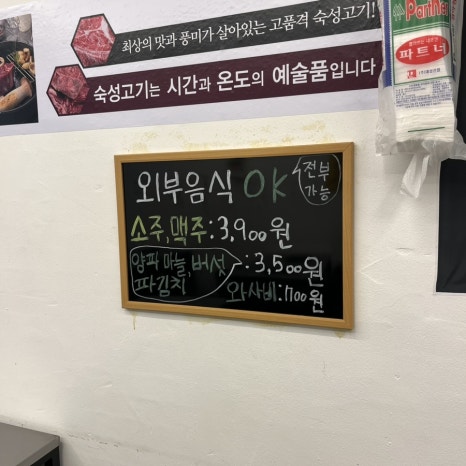 최상의 맛과 풍미가 살아있는 고품격 숙성고기!
숙성고기는 시간과 온도의 예술품입니다
Partner
파트너
외부음식 OK
전부
가능
소주,맥주:3,900원
양파 마늘,버섯 :3,500원
파김치
와사비:1700원